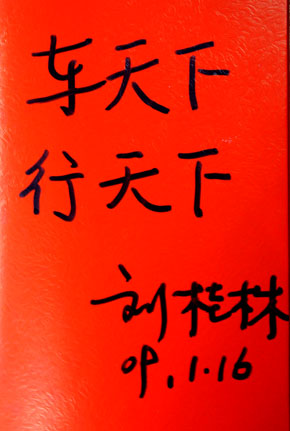 车天下
行天下
刘桂林
09.1.16